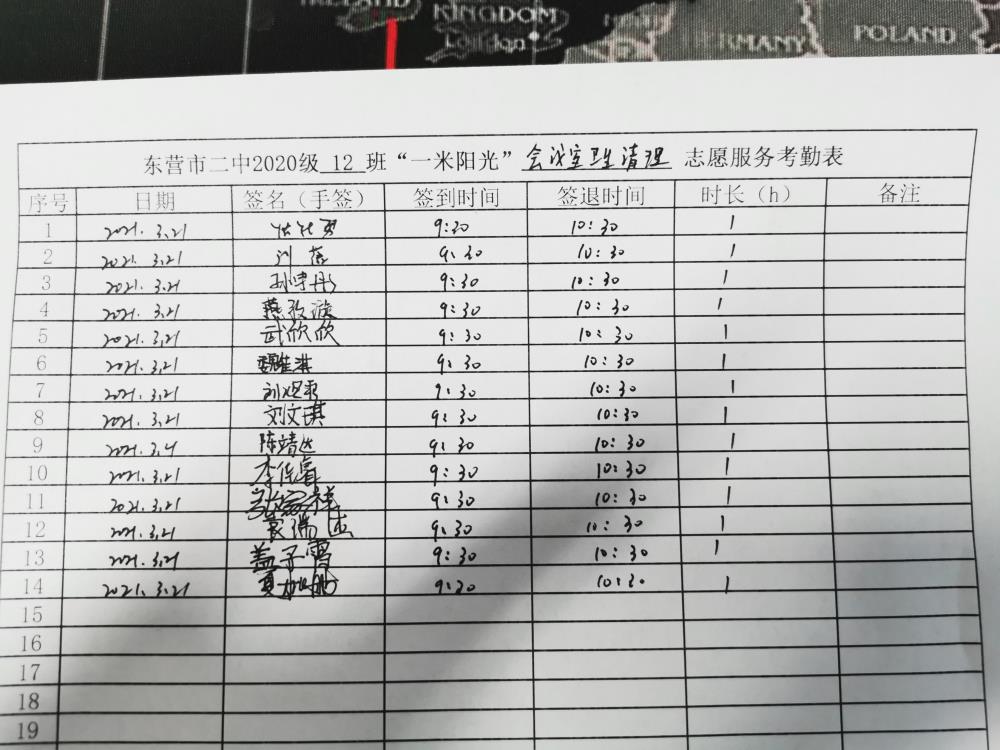 IRELAND
KINGDOM
London
GERMANY
POLAND
东营市二中2020级 12 班“一米阳光” 会议室卫生清理 志愿服务考勤表
序号 日期 签名（手签） 签到时间 签退时间 时长（h） 备注
1 2021.3.21 9:30 10:30 1
2 2021.3.21 9:30 10:30 1
3 2021.3.21 孙诗彤 9:30 10:30 1
4 2021.3.21 9:30 10:30 1
5 2021.3.21 武欣欣 9:30 10:30 1
6 2021.3.21 9:30 10:30 1
7 2021.3.21 9:30 10:30 1
8 2021.3.21 刘文琪 9:30 10:30 1
9 2021.3.21 陈靖达 9:30 10:30 1
10 2021.3.21 李佳睿 9:30 10:30 1
11 2021.3.21 9:30 10:30 1
12 2021.3.21 袁瑞杰 9:30 10:30 1
13 2021.3.21 盖子雪 9:30 10:30 1
14 2021.3.21 9:30 10:30 1
15
16
17
18
19